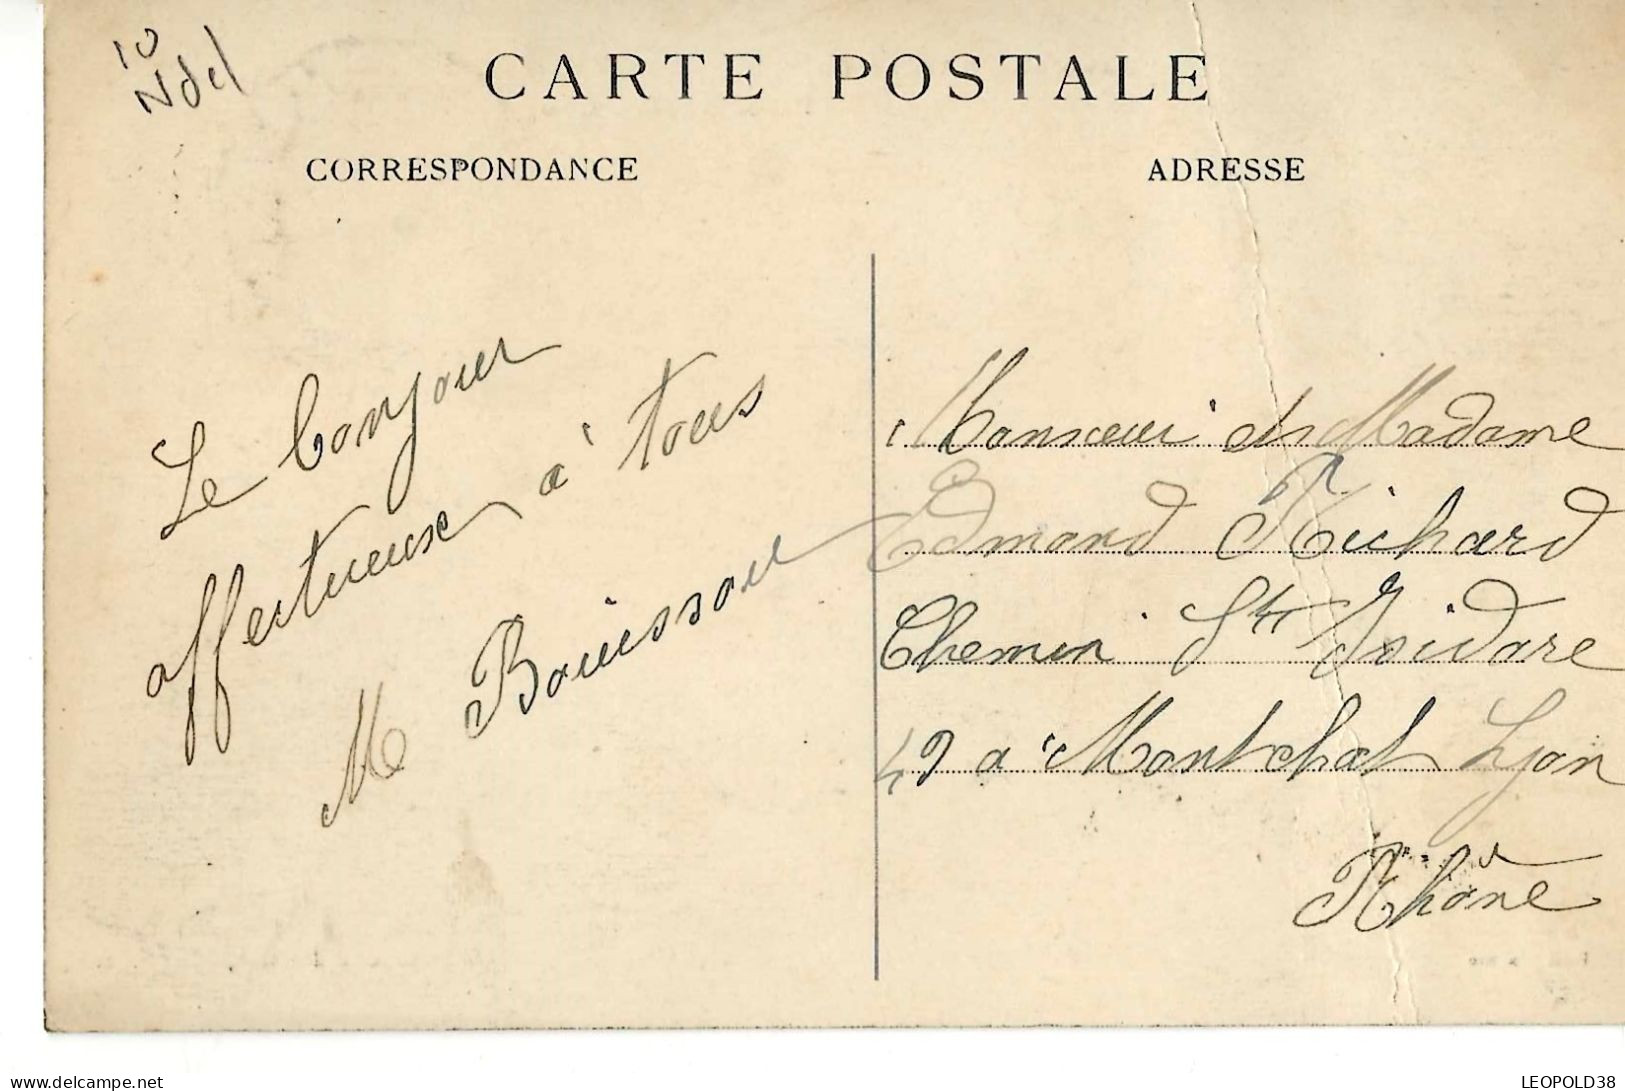 10
Ndel
CARTE POSTALE
CORRESPONDANCE
ADRESSE
Le bonjour
affectueux à tous
M Bouissou
Monsieur et Madame
Edmond Richard
Chemin St Isidore
49 a Montchat Lyon
Rhône
www.delcampe.net
LEOPOLD38